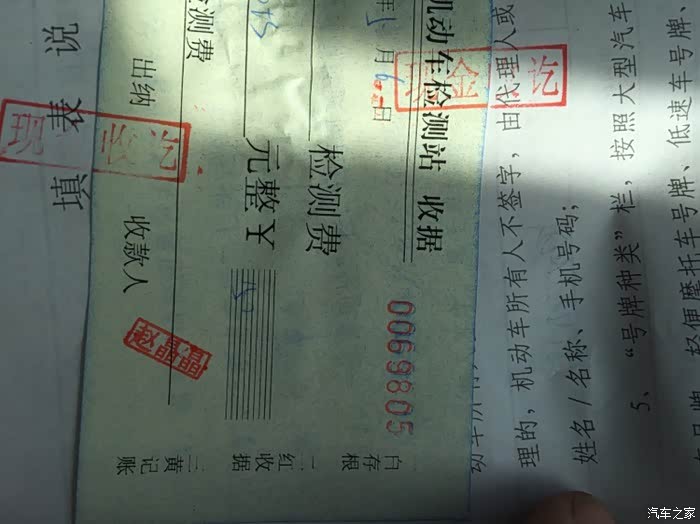 机动车检测站 收据
年 月 日
检测费
元整￥
检测费
出纳 收款人
0069805
一白存根
二红收据
三黄记账
现金收讫
现 收讫
填表说
理的，机动车所有人不签字，由代理人或
姓名/名称、手机号码；
5、“号牌种类”栏，按照大型汽车
号牌、轻便摩托车号牌、低速车号牌、
汽车之家